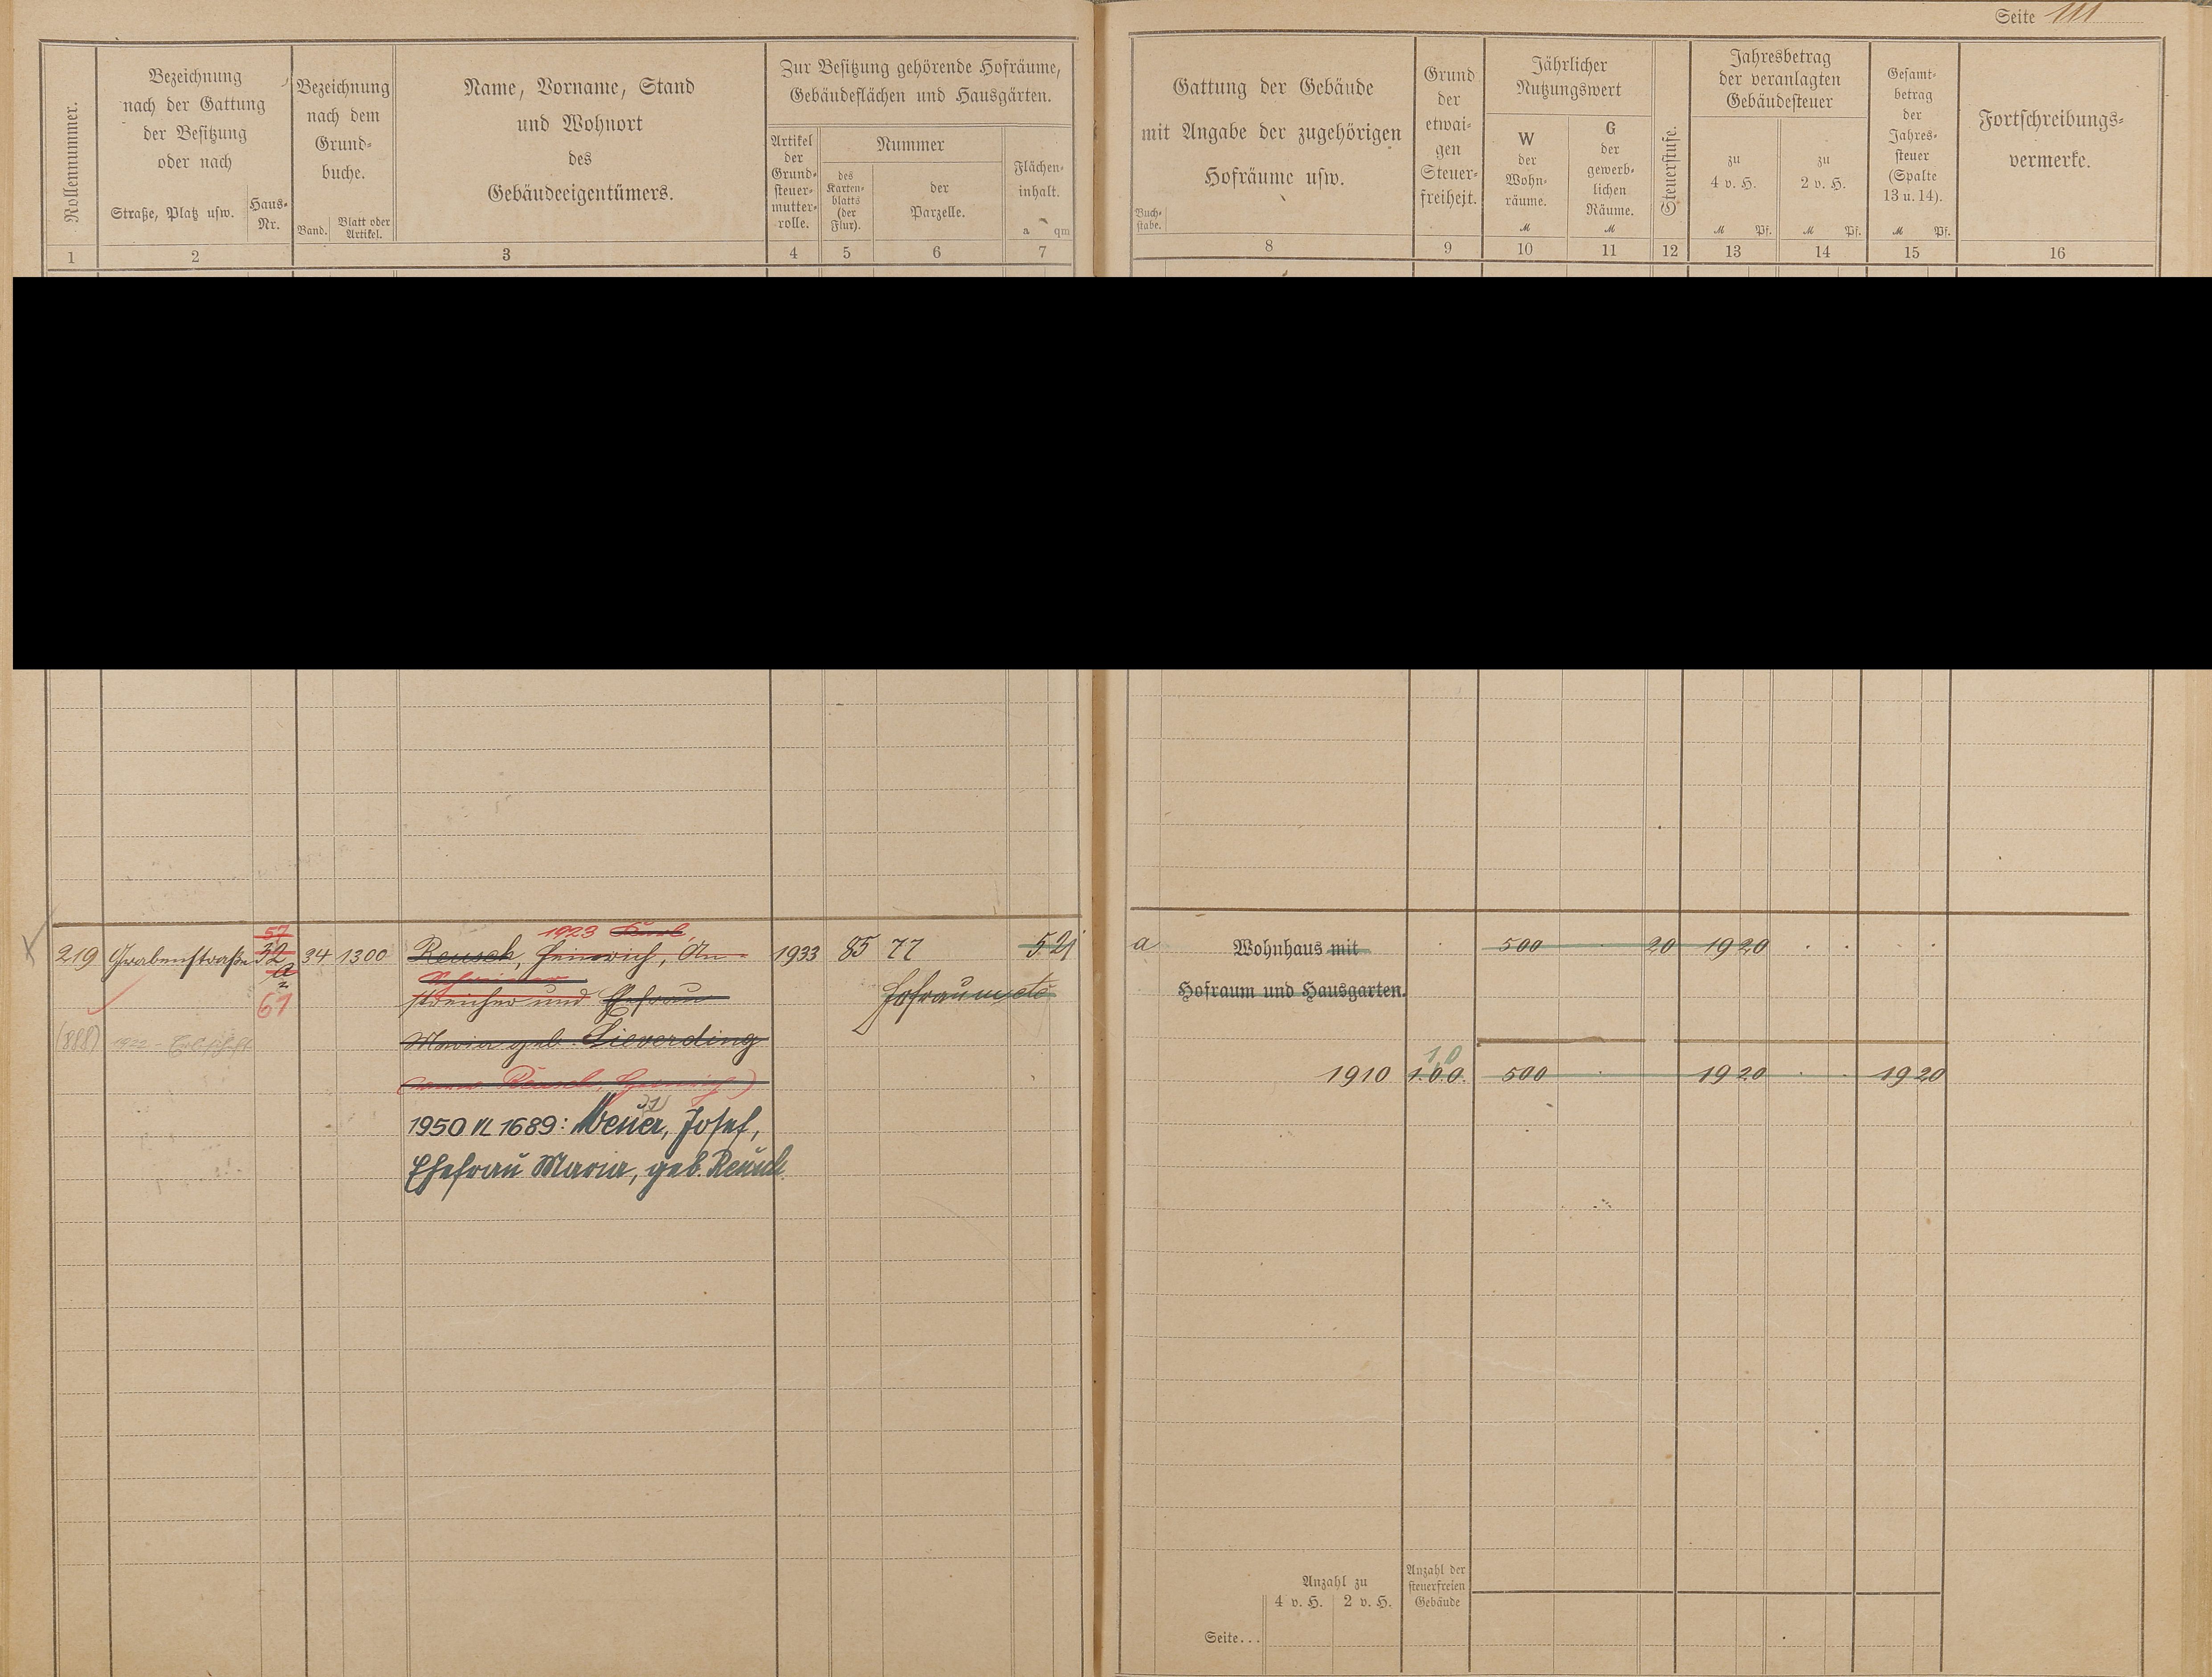 Seite 111
Rollennummer.
Bezeichnung
nach der Gattung
der Besitzung
oder nach
Straße, Platz usw.
Haus-
Nr.
Bezeichnung
nach dem
Grund-
buche.
Band.
Blatt oder
Artikel.
Name, Vorname, Stand
und Wohnort
des
Gebäudeeigentümers.
Zur Besitzung gehörende Hofräume,
Gebäudeflächen und Hausgärten.
Artikel
der
Grund-
steuer-
mutter-
rolle.
Nummer
des
Karten-
blatts
(der
Flur).
der
Parzelle.
Flächen-
inhalt.
a qm
Gattung der Gebäude
mit Angabe der zugehörigen
Hofräume usw.
Buch-
stabe.
Grund
der
etwai-
gen
Steuer-
freiheit.
Jährlicher
Nutzungswert
W
der
Wohn-
räume.
M
G
der
gewerb-
lichen
Räume.
M
Steuerstufe.
Jahresbetrag
der veranlagten
Gebäudesteuer
zu
4 v. H.
M Pf.
zu
2 v. H.
M Pf.
Gesamt-
betrag
der
Jahres-
steuer
(Spalte
13 u. 14).
M Pf.
Fortschreibungs-
vermerke.
1 2 3 4 5 6 7 8 9 10 11 12 13 14 15 16
57
1923 Karl
219 Grabenstraße 32 34 1300 Reusch, Heinrich, An- 1933 85 77 5 21 a Wohnhaus mit 500 20 19 20
a
streicher und Ehefrau Hofraum etc Hofraum und Hausgarten.
61
(888) 1922 -
Maria geb. Lieverding
Reusch, Heinrich)
10
1910 1.0.0. 500 19 20 19 20
1950 N 1689: Meuer, Josef,
Ehefrau Maria, geb. Reusch.
Anzahl zu
4 v. H. 2 v. H.
Anzahl der
steuerfreien
Gebäude
Seite...